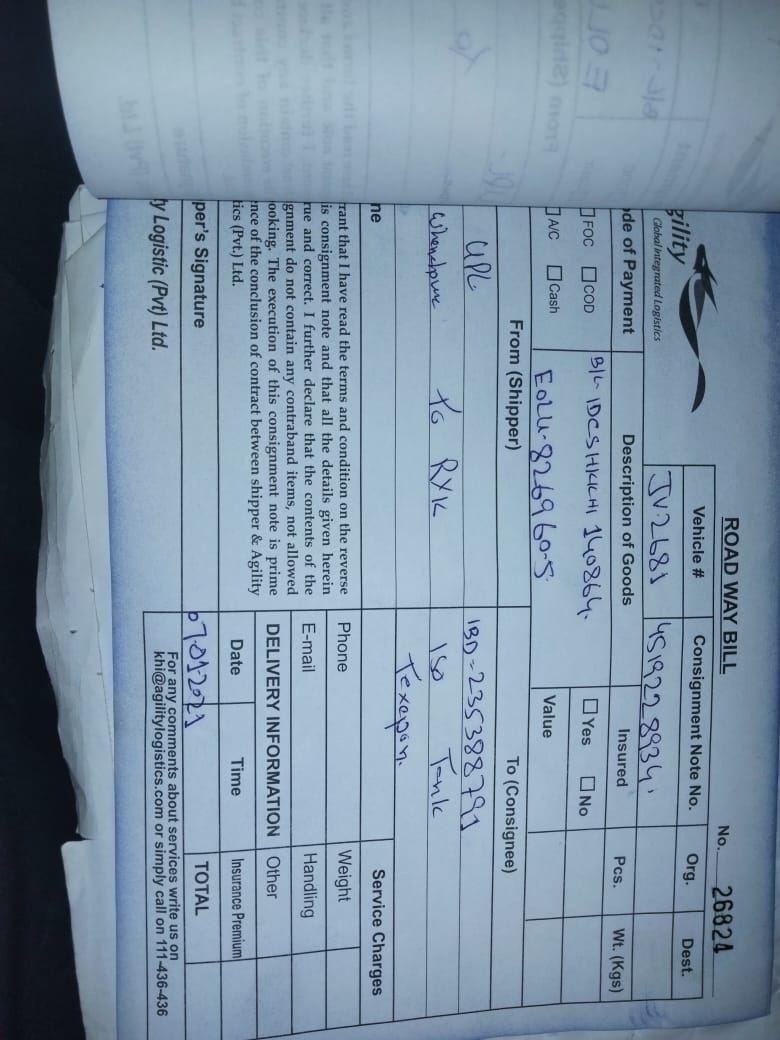 ROAD WAY BILL
No. 26824
gility
Global Integrated Logistics
Vehicle #
Consignment Note No.
Org.
Dest.
JV-2681
4519228934
de of Payment
Description of Goods
Insured
Pcs.
Wt. (Kgs)
FOC
COD
B/L IDCSHKKHI 140864.
Yes
No
A/C
Cash
EOLU-826960-5
Value
From (Shipper)
To (Consignee)
UPL
IBD-235388791
To RYK
ISO Tank
Texapon.
ne
Service Charges
rant that I have read the terms and condition on the reverse
is consignment note and that all the details given herein
rue and correct. I further declare that the contents of the
gnment do not contain any contraband items, not allowed
ooking. The execution of this consignment note is prime
nce of the conclusion of contract between shipper & Agility
tics (Pvt.) Ltd.
Phone
Weight
E-mail
Handling
DELIVERY INFORMATION
Other
Date
Time
Insurance Premium
per's Signature
07-01-2021
TOTAL
y Logistic (Pvt) Ltd.
For any comments about services write us on
khi@agilitylogistics.com or simply call on 111-436-436